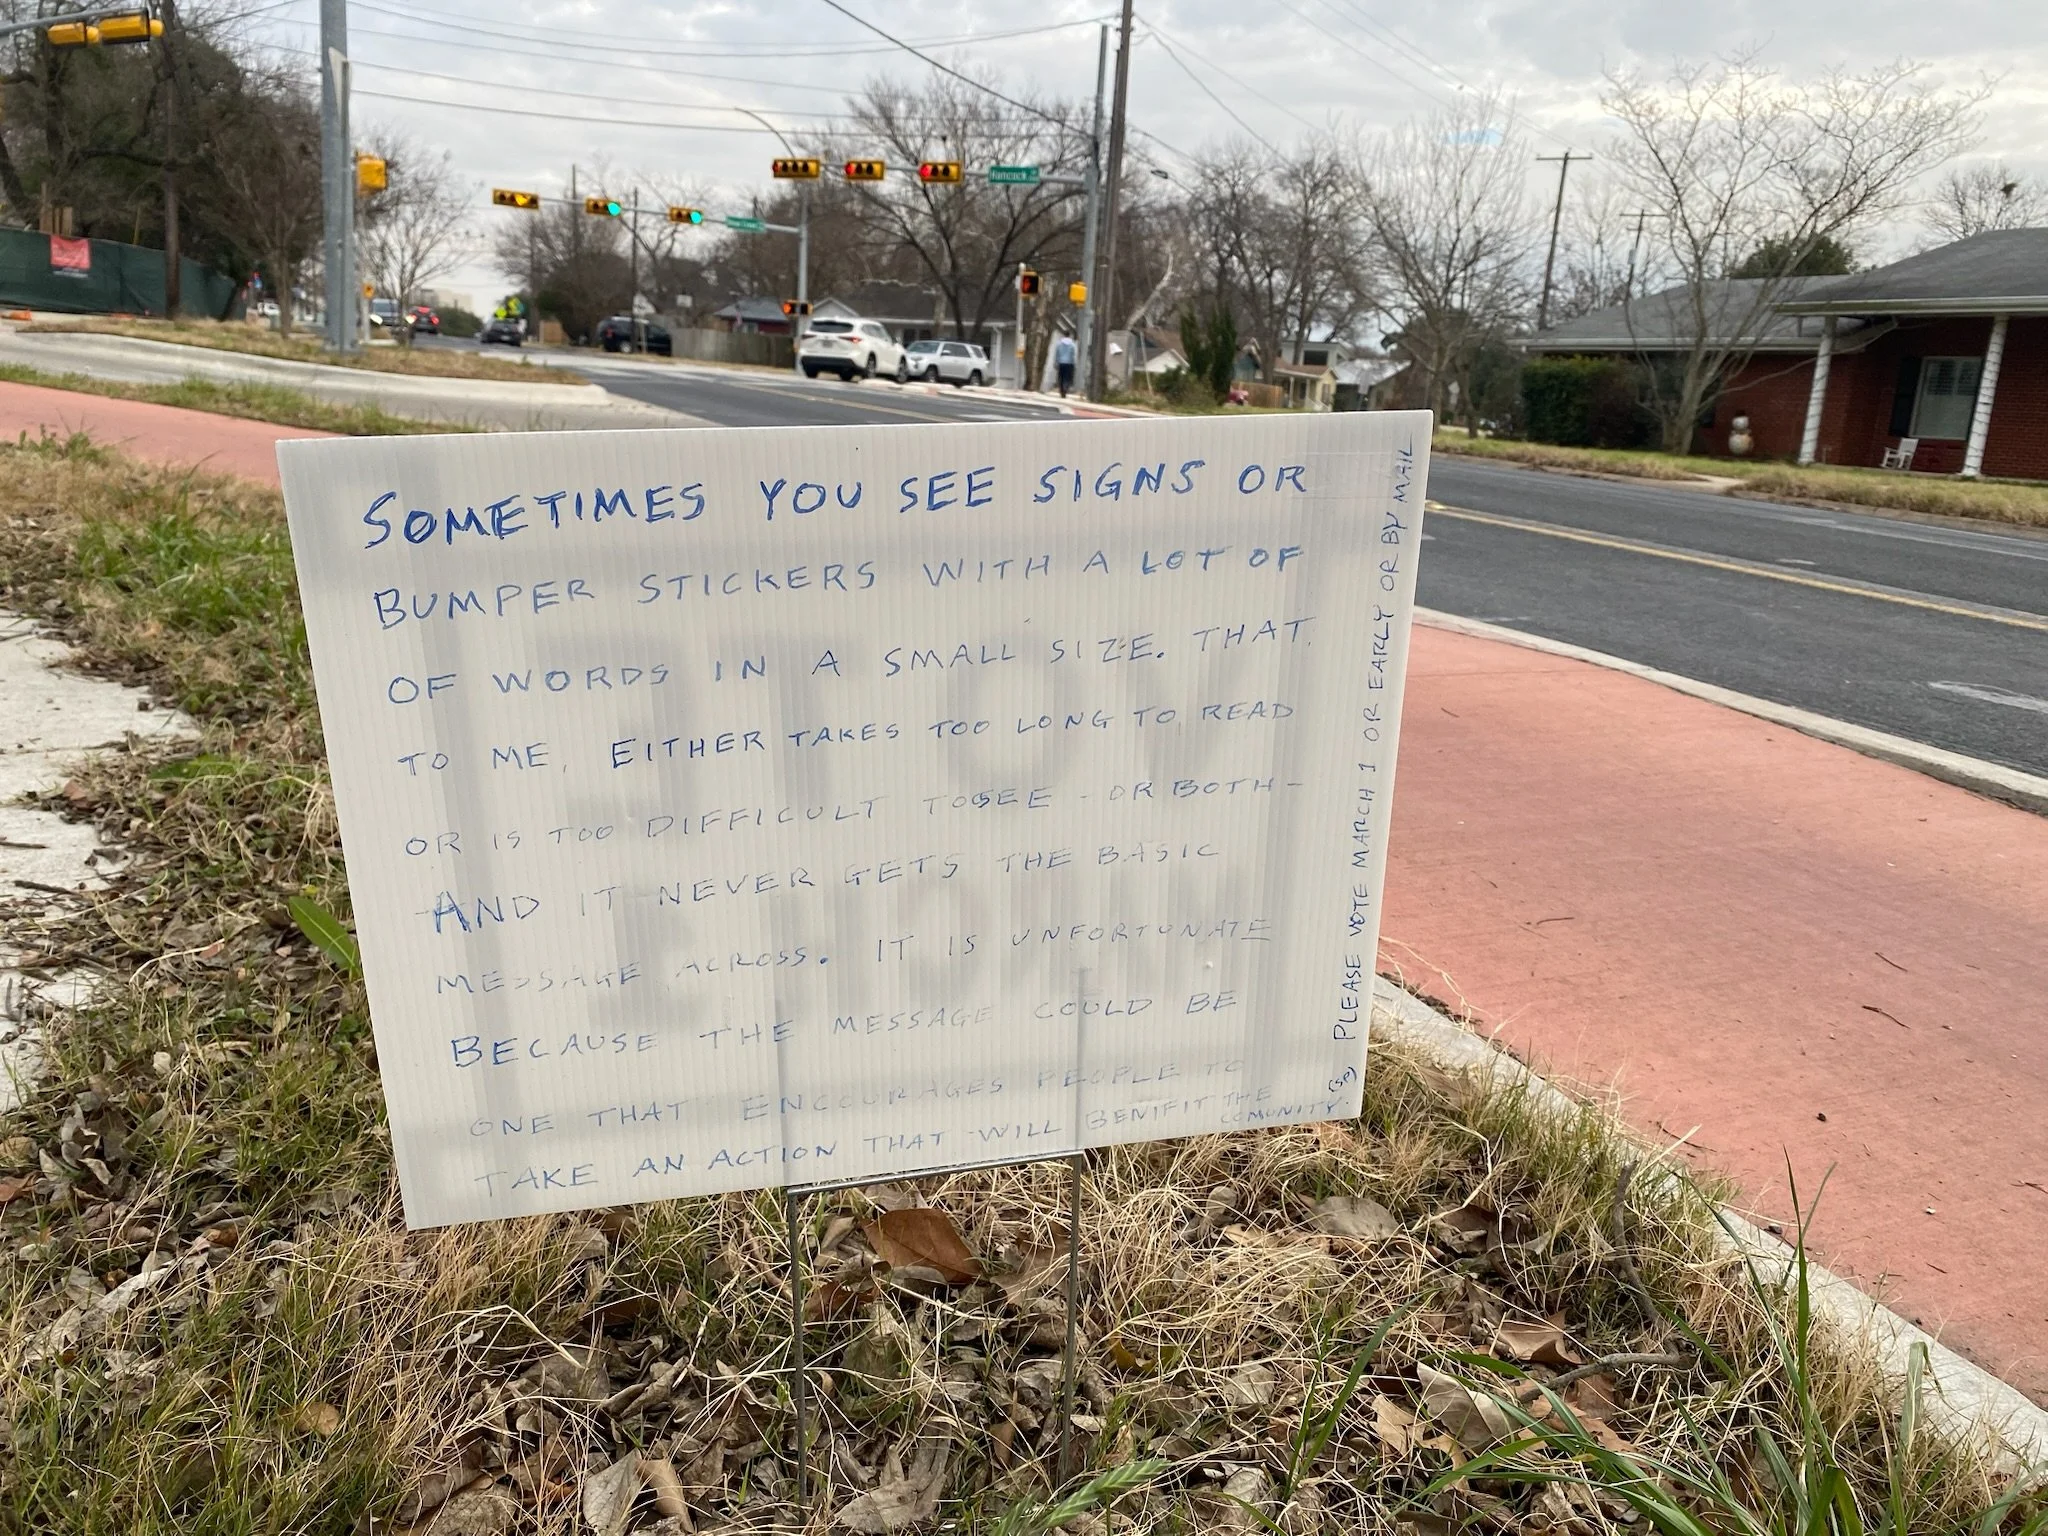 SOMETIMES YOU SEE SIGNS OR
BUMPER STICKERS WITH A LOT OF
OF WORDS IN A SMALL SIZE. THAT,
TO ME, EITHER TAKES TOO LONG TO READ
OR IS TOO DIFFICULT TO SEE - OR BOTH -
AND IT NEVER GETS THE BASIC
MESSAGE ACROSS. IT IS UNFORTUNATE
BECAUSE THE MESSAGE COULD BE
ONE THAT ENCOURAGES PEOPLE TO
TAKE AN ACTION THAT WILL BENIFIT THE
COMUNITY.
(SO) PLEASE VOTE MARCH 1 OR EARLY OR BY MAIL
Hancock